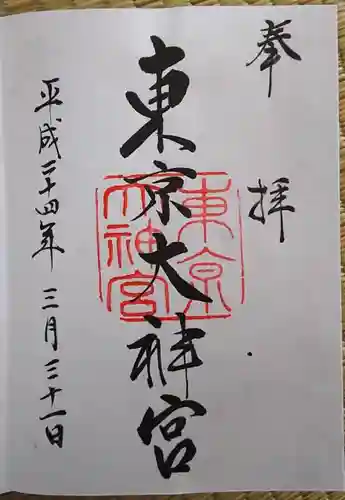 奉拝
東京大神宮
東京大神宮
平成二十四年三月三十一日